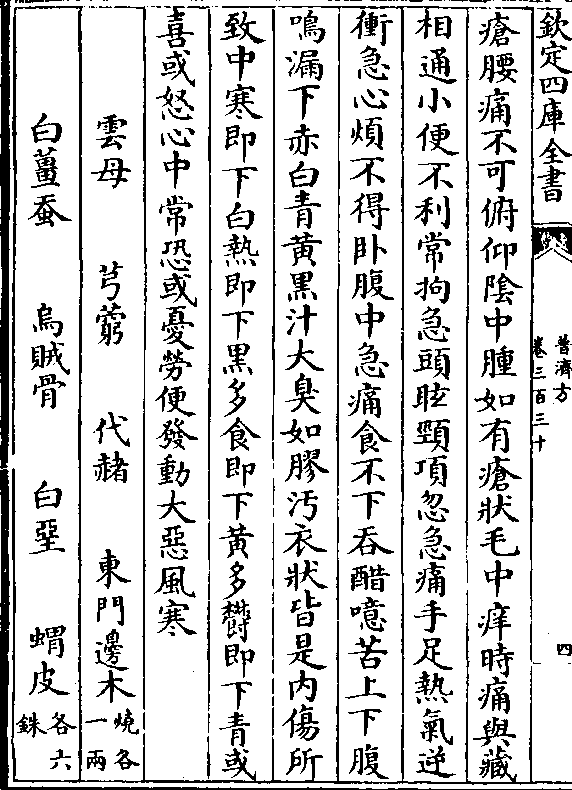 欽定四庫全書
普濟方
卷三百三十
四
瘡腰痛不可俯仰陰中腫如有瘡狀毛中痒時痛與藏
相通小便不利常拘急頭眩頸項忽急痛手足熱氣逆
衝急心煩不得卧腹中急痛食不下吞醋噫苦上下腹
鳴漏下赤白青黃黑汁大臭如膠汚衣狀皆是内傷所
致中寒即下白熱即下黑多食即下黃多欝即下青或
喜或怒心中常恐或憂勞便發動大惡風寒
雲母 芎藭 代赭 東門邊木燒各一兩
白薑蚕 烏賊骨 白堊 蝟皮各六銖